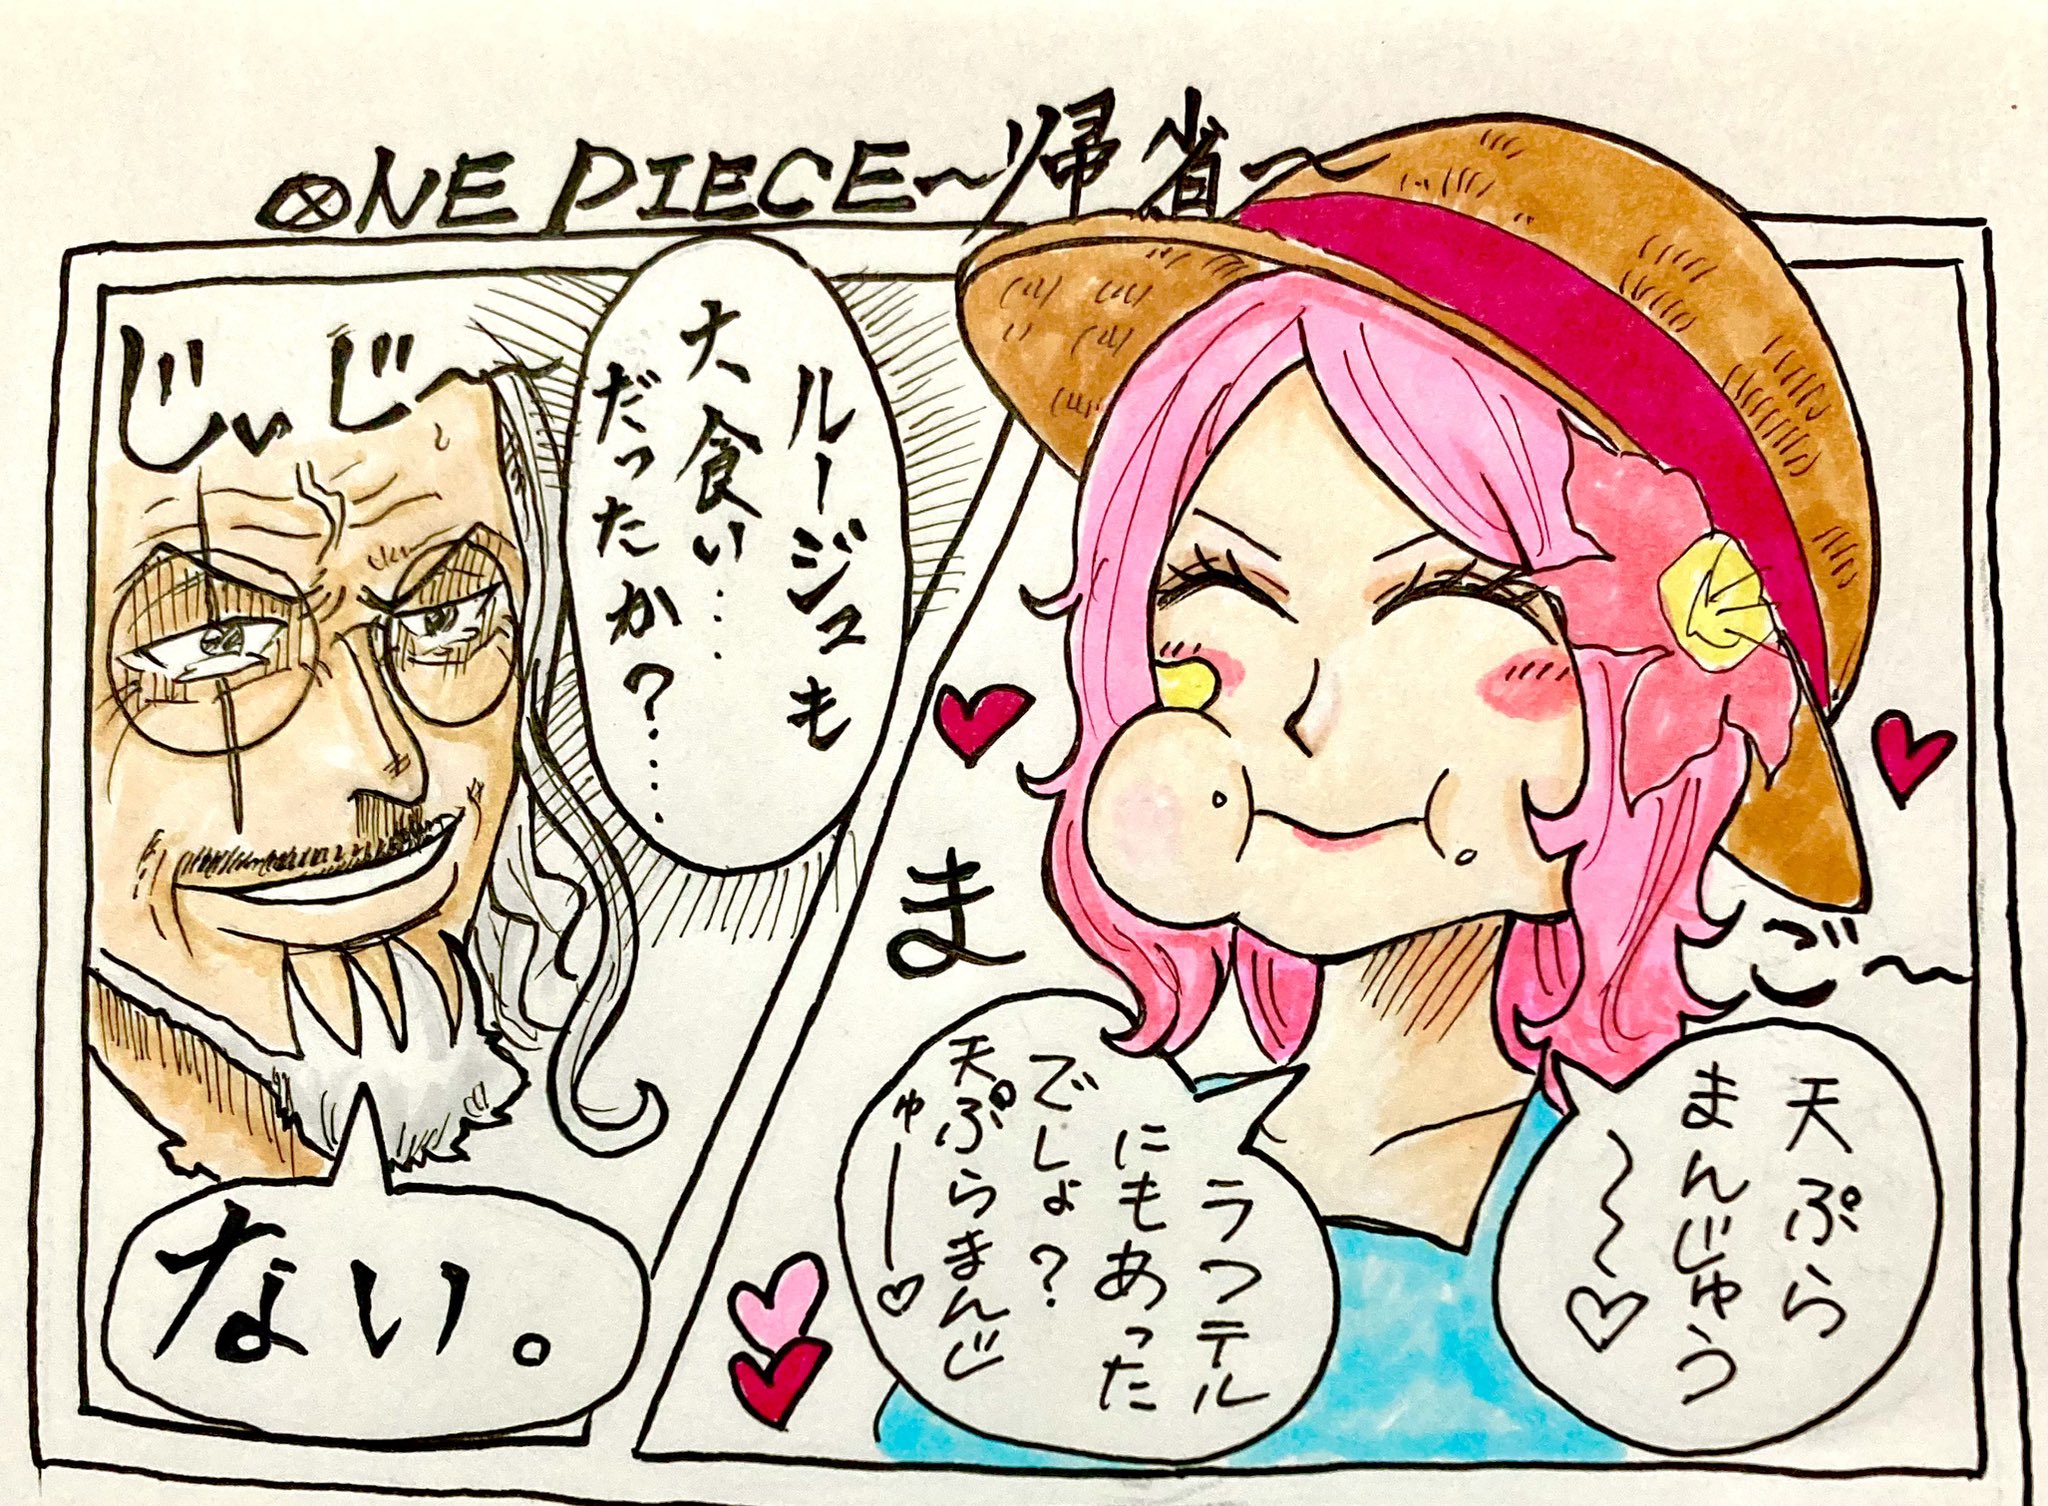 ONE PIECE～帰省～
天ぷら
まんじゅう
～～～♡
ラフテル
にもあった
でしょ？
天ぷらまんじ
ゅー♡
ま
ご～
ルージュも
大食い……
だったか？……
じぃじ～
ない。